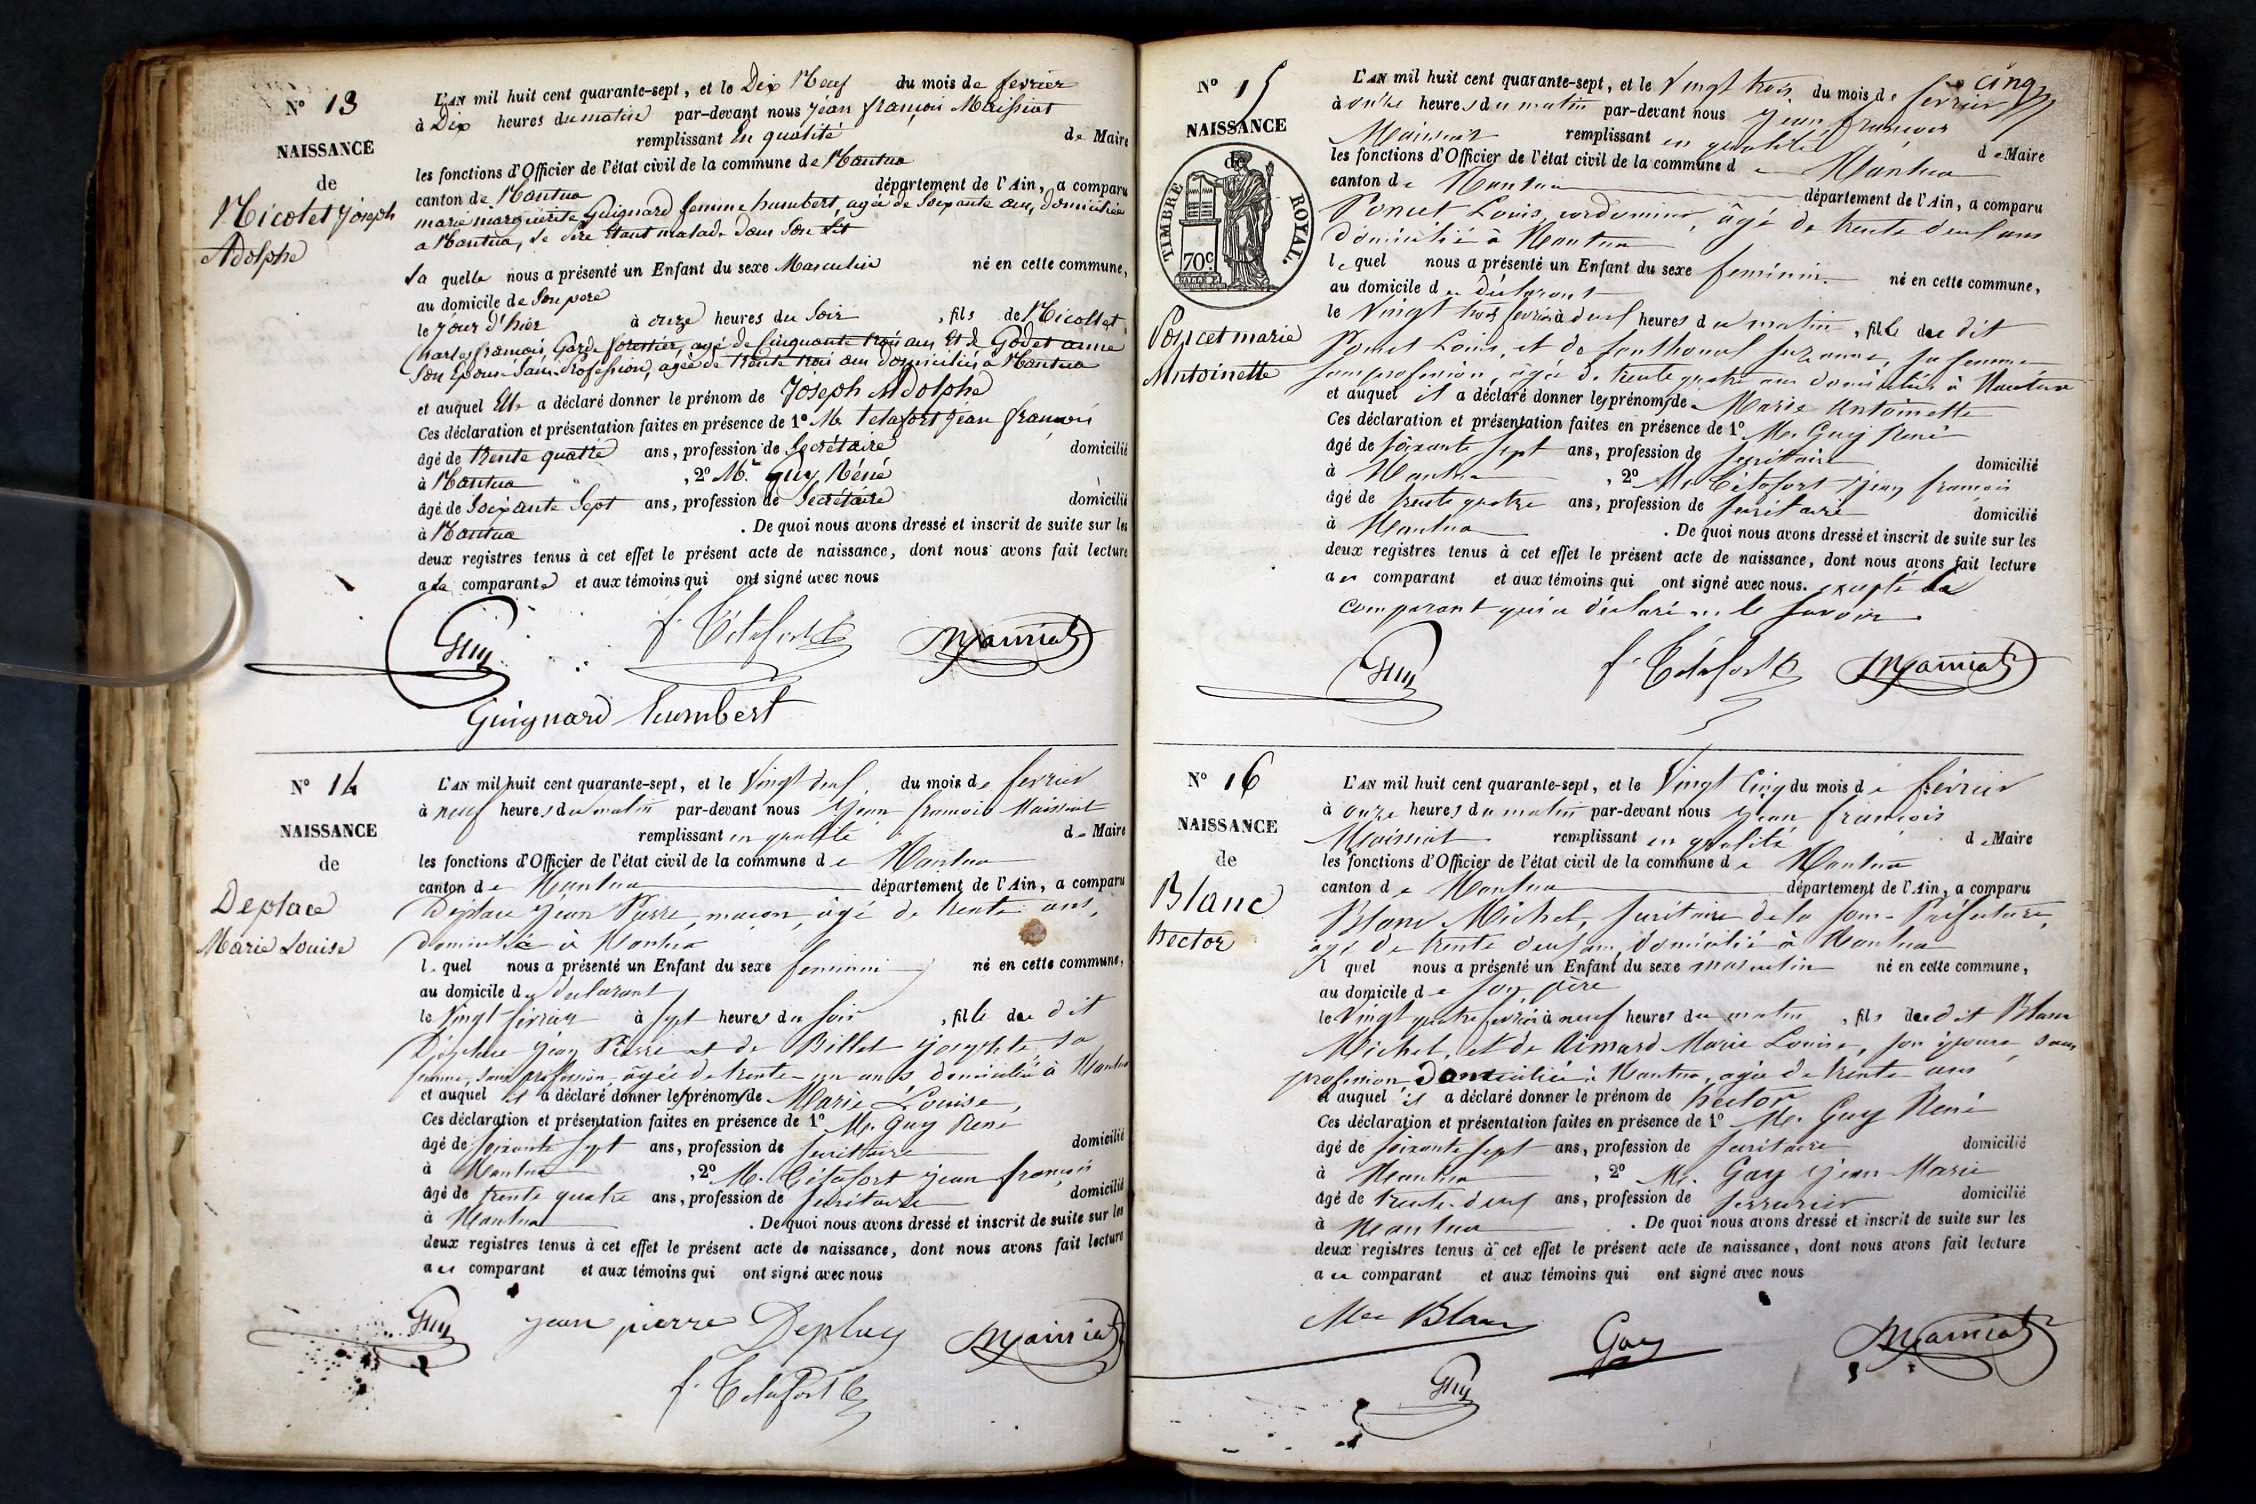 N° 13
NAISSANCE
de
Nicolet Joseph
Adolphe
L'AN mil huit cent quarante-sept, et le Dix Neuf du mois de fevrier
à Dix heures du matin par-devant nous Jean françois Maissiat
remplissant En qualité de Maire
les fonctions d'Officier de l'état civil de la commune de Nantua
canton de Nantua département de l'Ain, a comparu
marie marguerite Guignard femme humbert, agée de Soixante ans, domiciliée
a Nantua, le Père Etant malade dans Son Lit
La quelle nous a présenté un Enfant du sexe Masculin né en cette commune,
au domicile de Son pere
le Jour d'hier à onze heures du Soir, fils de Nicollet
Charles françois, Garde forestier, agé de Cinquante trois ans Et de Godet anne
Son Epouse Sans Profession, agée de trente trois ans domiciliés a Nantua
et auquel Elle a déclaré donner le prénom de Joseph Adolphe
Ces déclaration et présentation faites en présence de 1° Mr Tetafort Jean françois
âgé de trente quatre ans, profession de Secrétaire domicilié
à Nantua, 2° Mr. Guy Réné
âgé de Soixante Sept ans, profession de Secrétaire domicilié
à Nantua. De quoi nous avons dressé et inscrit de suite sur les
deux registres tenus à cet effet le présent acte de naissance, dont nous avons fait lecture
a La comparante et aux témoins qui ont signé avec nous
Guy f. Tétafort Maissiat
Guignard humbert
N° 14
NAISSANCE
de
Deplace
Marie Louise
L'AN mil huit cent quarante-sept, et le Vingt deux du mois de fevrier
à neuf heures du matin par-devant nous Jean françois Maissiat
remplissant en qualité de Maire
les fonctions d'Officier de l'état civil de la commune de Nantua
canton de Nantua département de l'Ain, a comparu
Déplace Jean Pierre, maçon, âgé de trente ans,
domicilié à Nantua
lequel nous a présenté un Enfant du sexe feminin né en cette commune,
au domicile du déclarant
le Vingt février à sept heures du soir, fille du dit
Déplace Jean Pierre et de Billet josephte sa
femme, sans profession âgée de trente un ans domiciliés à Nantua
et auquel il a déclaré donner les prénoms de Marie Louise,
Ces déclaration et présentation faites en présence de 1° Mr. Guy René
âgé de soixante sept ans, profession de secrétaire domicilié
à Nantua, 2° Mr. Tétafort jean françois
âgé de trente quatre ans, profession de secrétaire domicilié
à Nantua. De quoi nous avons dressé et inscrit de suite sur les
deux registres tenus à cet effet le présent acte de naissance, dont nous avons fait lecture
au comparant et aux témoins qui ont signé avec nous
Guy jean pierre Deplace Maissiat
f. Tétafort
cinq
N° 15
NAISSANCE
de
TIMBRE ROYAL.
70c.
Poncet marie
Antoinette
L'AN mil huit cent quarante-sept, et le Vingt trois du mois de fevrier
à onze heures du matin par-devant nous Jean françois
Maissiat remplissant en qualité de Maire
les fonctions d'Officier de l'état civil de la commune de Nantua
canton de Nantua département de l'Ain, a comparu
Poncet Louis, cordonnier, âgé de trente deux ans
domicilié à Nantua
lequel nous a présenté un Enfant du sexe feminin né en cette commune,
au domicile du déclarant
le Vingt trois fevrier à deux heures du matin, fille du dit
Poncet Louis, et de Suzanne, sa femme
sans profession, âgée de trente quatre ans domiciliés à Nantua
et auquel il a déclaré donner les prénoms de Marie Antoinette
Ces déclaration et présentation faites en présence de 1° Mr. Guy René
âgé de soixante sept ans, profession de secrétaire domicilié
à Nantua, 2° Mr. Tétafort Jean françois
âgé de trente quatre ans, profession de secrétaire domicilié
à Nantua. De quoi nous avons dressé et inscrit de suite sur les
deux registres tenus à cet effet le présent acte de naissance, dont nous avons fait lecture
au comparant et aux témoins qui ont signé avec nous. excepté le
comparant qui a déclaré ne le savoir.
Guy f. Tétafort Maissiat
N° 16
NAISSANCE
de
Blanc
hector
L'AN mil huit cent quarante-sept, et le Vingt Cinq du mois de février
à onze heures du matin par-devant nous Jean françois
Maissiat remplissant en qualité de Maire
les fonctions d'Officier de l'état civil de la commune de Nantua
canton de Nantua département de l'Ain, a comparu
Blanc Michel, secrétaire de la sous-Préfecture,
âgé de trente deux ans, domicilié à Nantua
lequel nous a présenté un Enfant du sexe masculin né en cette commune,
au domicile de son père
le Vingt quatre fevrier à neuf heures du matin, fils du dit Blanc
Michel, et de Aimard Marie Louise, son épouse, sans
profession, Domiciliée à Nantua, agée de trente ans
et auquel il a déclaré donner le prénom de hector
Ces déclaration et présentation faites en présence de 1° Mr. Guy René
âgé de soixante sept ans, profession de secrétaire domicilié
à Nantua, 2° Mr. Gay jean-Marie
âgé de trente-deux ans, profession de serrurier domicilié
à Nantua. De quoi nous avons dressé et inscrit de suite sur les
deux registres tenus à cet effet le présent acte de naissance, dont nous avons fait lecture
au comparant et aux témoins qui ont signé avec nous
Blanc Gay Maissiat
Guy